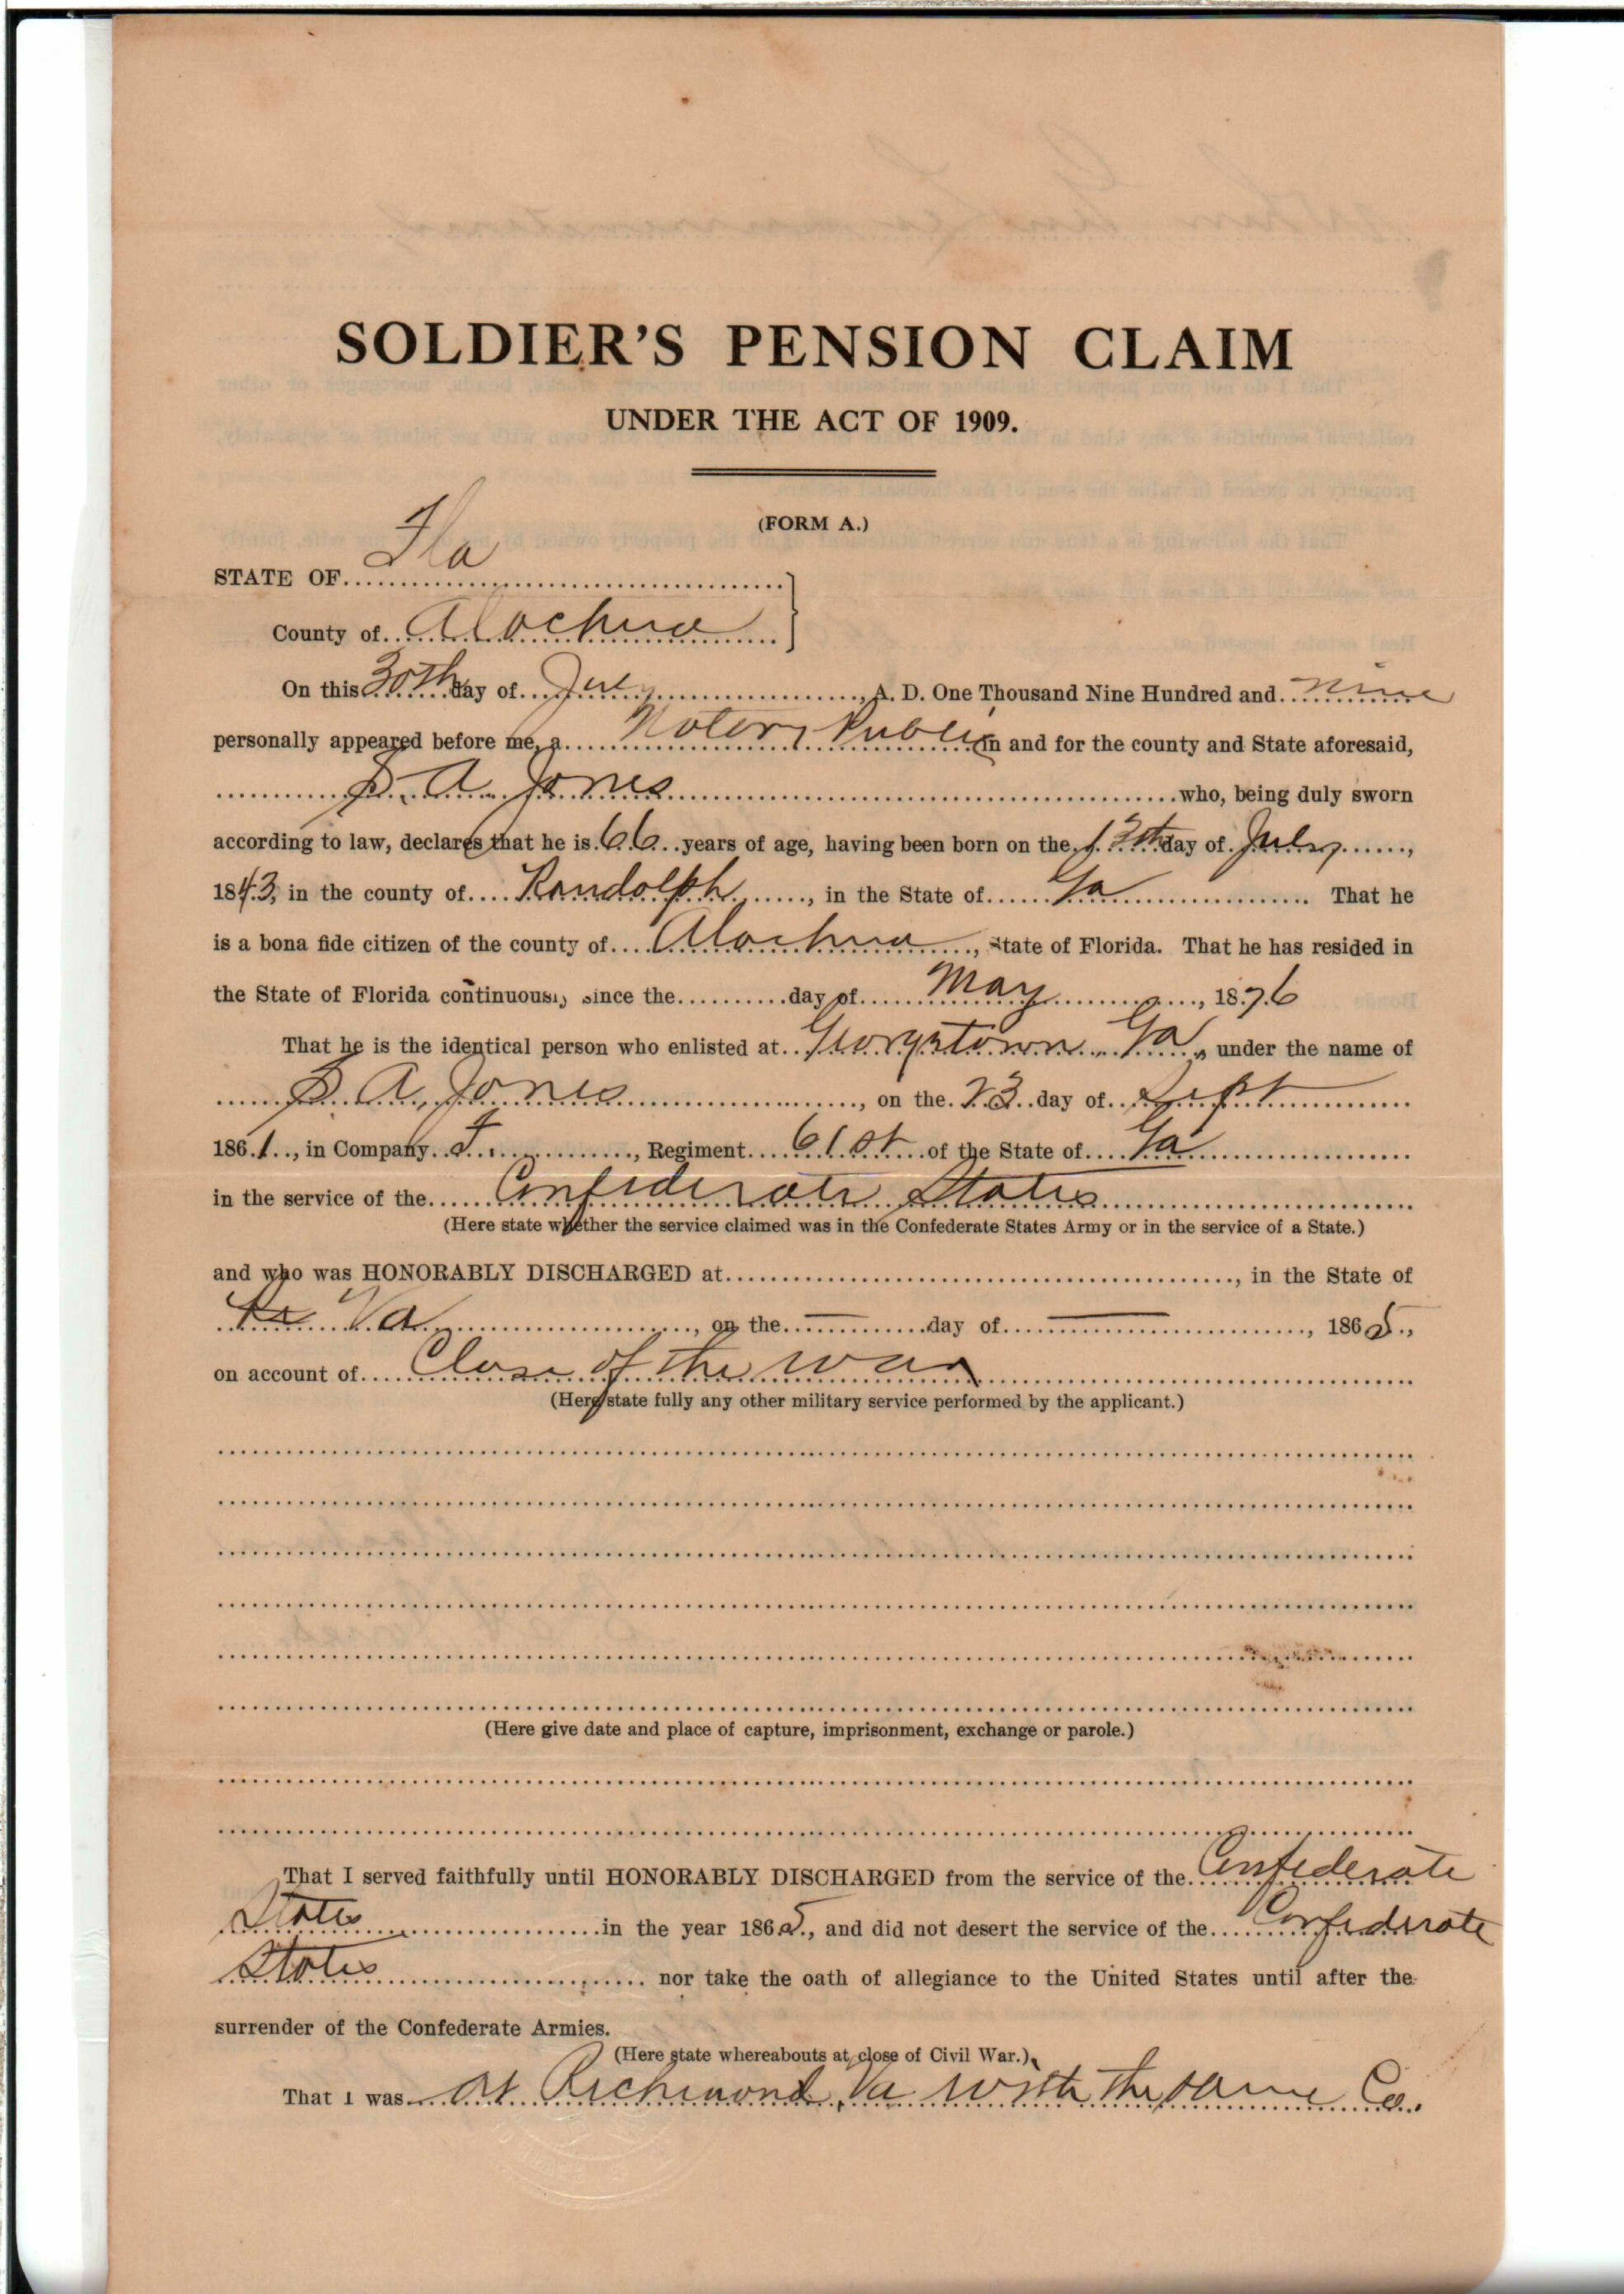 SOLDIER'S PENSION CLAIM
UNDER THE ACT OF 1909.
(FORM A.)
STATE OF Fla
County of Alachua
On this 30th day of July, A. D. One Thousand Nine Hundred and nine
personally appeared before me, a Notary Public in and for the county and State aforesaid,
A. Jones who, being duly sworn
according to law, declares that he is 66 years of age, having been born on the day of July,
1843, in the county of Randolph, in the State of Ga That he
is a bona fide citizen of the county of Alachua, State of Florida. That he has resided in
the State of Florida continuously since the day of May, 1876
That he is the identical person who enlisted at Georgetown Ga, under the name of
A. Jones, on the 23 day of Sept
1861, in Company F, Regiment 61st of the State of Ga
in the service of the Confederate States
(Here state whether the service claimed was in the Confederate States Army or in the service of a State.)
and who was HONORABLY DISCHARGED at, in the State of
Va, on the day of, 1865,
on account of Close of the war
(Here state fully any other military service performed by the applicant.)
(Here give date and place of capture, imprisonment, exchange or parole.)
That I served faithfully until HONORABLY DISCHARGED from the service of the Confederate
States in the year 1865, and did not desert the service of the Confederate
States nor take the oath of allegiance to the United States until after the
surrender of the Confederate Armies.
(Here state whereabouts at close of Civil War.)
That I was at Richmond, Va with the same Co.